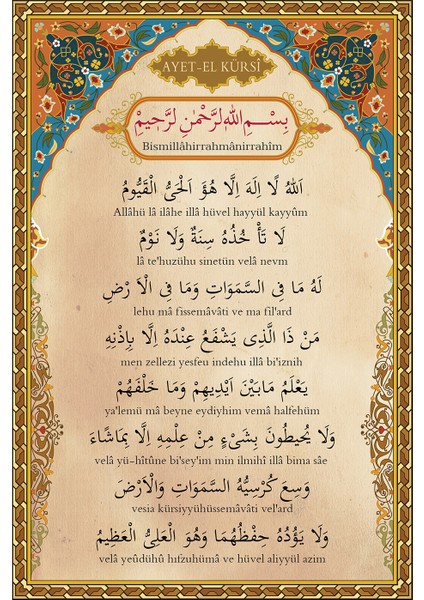 AYET-EL KÜRSÎ
بِسْمِ اللهِ الرَّحْمٰنِ الرَّحِيمِ
Bismillâhirrahmânirrahîm
اَللهُ لَا اِلَهَ اِلَّا هُوَ اَلْحَىُّ الْقَيُّومُ
Allâhü lâ ilâhe illâ hüvel hayyül kayyûm
لَا تَأْ خُذُهُ سِنَةٌ وَلَا نَوْمٌ
lâ te'huzühu sinetün velâ nevm
لَهُ مَا فِى السَّمَوَاتِ وَمَا فِى الْاَ رْضِ
lehu mâ fissemâvâti ve ma fil'ard
مَنْ ذَا الَّذِى يَشْفَعُ عِنْدَهُ اِلَّا بِاِذْنِهِ
men zellezi yesfeu indehu illâ bi'iznih
يَعْلَمُ مَابَيْنَ اَيْدِيهِمْ وَمَا خَلْفَهُمْ
ya'lemü mâ beyne eydiyhim vemâ halfehüm
وَلَا يُحِيطُونَ بِشَىْءٍ مِنْ عِلْمِهِ اِلَّا بِمَاشَاءَ
velâ yü-hîtûne bi'sey'im min ilmihî illâ bima sâe
وَسِعَ كُرْسِيُّهُ السَّمَوَاتِ وَالْاَرْضَ
vesia kürsiyyühüssemâvâti vel'ard
وَلَا يَؤُدُهُ حِفْظُهُمَا وَهُوَ الْعَلِىُّ الْعَظِيمُ
velâ yeûdühü hıfzuhümâ ve hüvel aliyyül azim